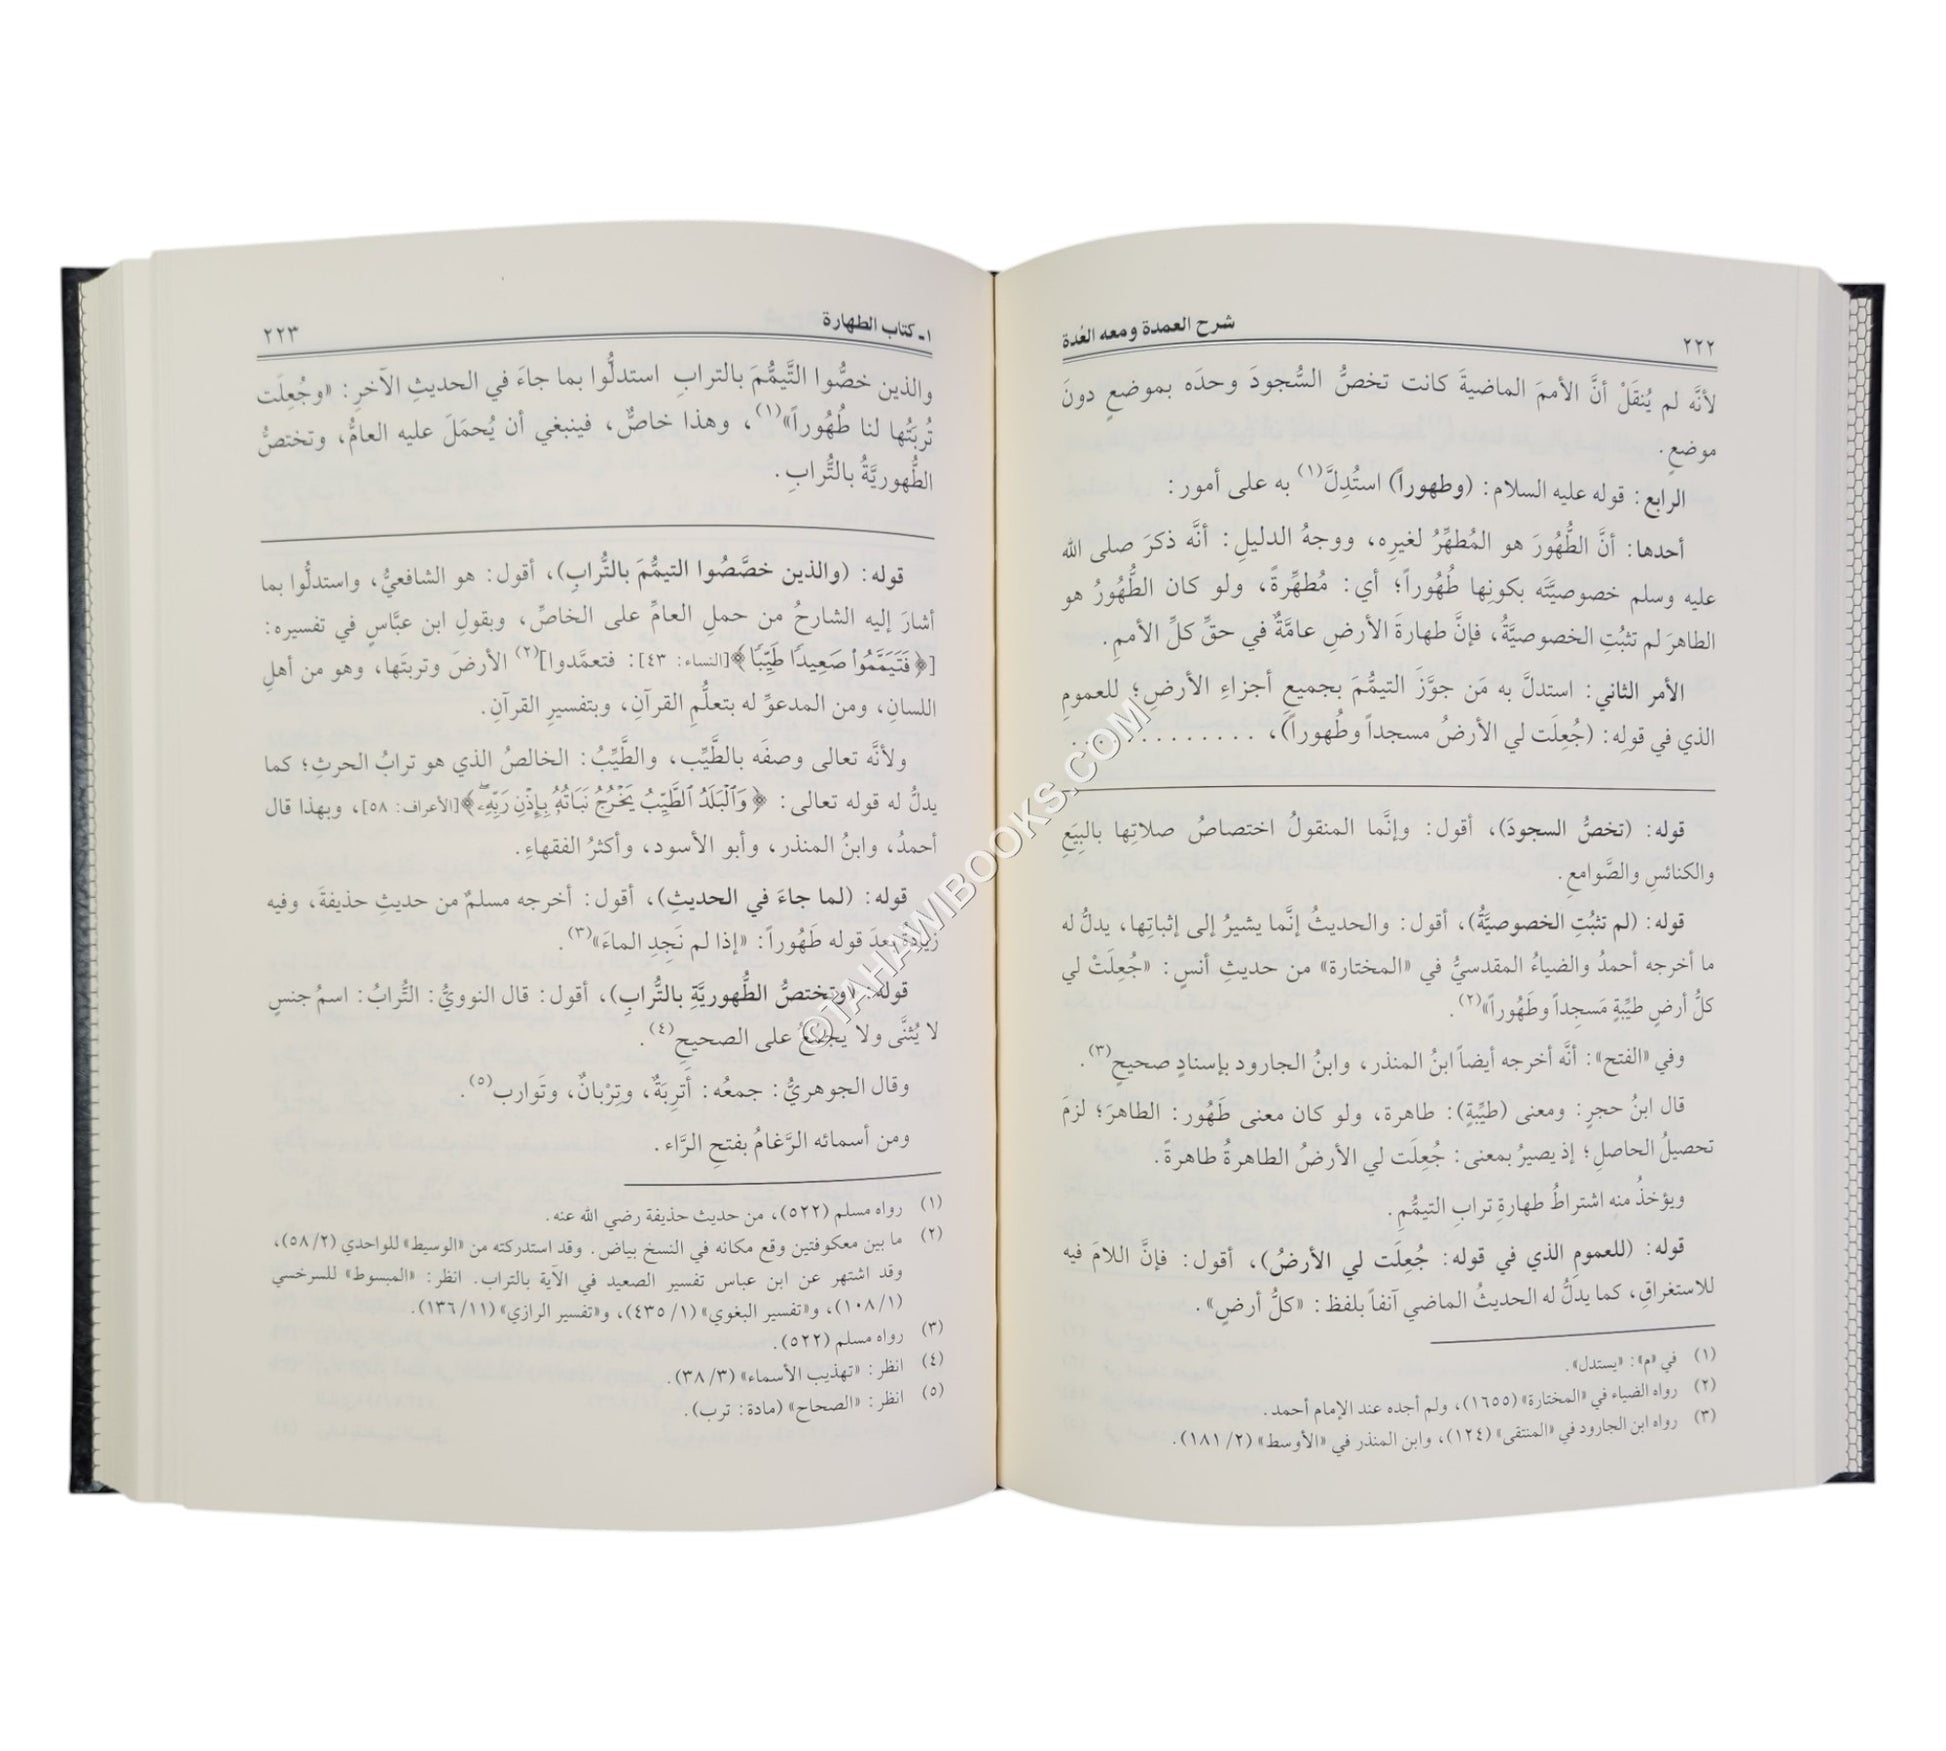 ٢٢٢
شرح العمدة ومعه العُدة
لأنَّه لم يُنقَلْ أنَّ الأممَ الماضيةَ كانت تخصُّ السُّجودَ وحدَه بموضعٍ دونَ
موضعٍ.
الرابع: قوله عليه السلام: (وطهوراً) استُدِلَّ(١) به على أمور:
أحدها: أنَّ الطُّهورَ هو المُطهِّرُ لغيرِه، ووجهُ الدليلِ: أنَّه ذكرَ صلى الله
عليه وسلم خصوصيَّتَه بكونِها طُهُوراً؛ أي: مُطهِّرةً، ولو كان الطُّهورُ هو
الطاهرَ لم تثبُتِ الخصوصيَّةُ، فإنَّ طهارةَ الأرضِ عامَّةٌ في حقِّ كلِّ الأممِ.
الأمر الثاني: استدلَّ به مَن جوَّزَ التيمُّمَ بجميعِ أجزاءِ الأرضِ؛ للعمومِ
الذي في قولِه: (جُعِلَت لي الأرضُ مسجداً وطُهوراً)، . . . . . . . . . . . . .
قوله: (تخصُّ السجودَ)، أقول: وإنَّما المنقولُ اختصاصُ صلاتِها بالبِيَعِ
والكنائسِ والصَّوامعِ.
قوله: (لم تثبُتِ الخصوصيَّةُ)، أقول: والحديثُ إنَّما يشيرُ إلى إثباتِها، يدلُّ له
ما أخرجه أحمدُ والضياءُ المقدسيُّ في «المختارة» من حديثِ أنسٍ: «جُعِلَتْ لي
كلُّ أرضٍ طيِّبةٍ مَسجِداً وطَهُوراً»(٢).
وفي «الفتح»: أنَّه أخرجه أيضاً ابنُ المنذر، وابنُ الجارود بإسنادٍ صحيحٍ(٣).
قال ابنُ حجرٍ: ومعنى (طيِّبةٍ): طاهرة، ولو كان معنى طَهُور: الطاهرَ؛ لزمَ
تحصيلُ الحاصلِ؛ إذ يصيرُ بمعنى: جُعِلَت لي الأرضُ الطاهرةُ طاهرةً.
ويؤخذُ منه اشتراطُ طهارةِ ترابِ التيمُّمِ.
قوله: (للعمومِ الذي في قوله: جُعِلَت لي الأرضُ)، أقول: فإنَّ اللامَ فيه
للاستغراقِ، كما يدلُّ له الحديثُ الماضي آنفاً بلفظ: «كلُّ أرضٍ».
(١) في «م»: «يستدل».
(٢) رواه الضياء في «المختارة» (١٦٥٥)، ولم أجده عند الإمام أحمد.
(٣) رواه ابن الجارود في «المنتقى» (١٢٤)، وابن المنذر في «الأوسط» (٢/ ١٨١).
١ـ كتاب الطهارة
٢٢٣
والذين خصُّوا التَّيمُّمَ بالترابِ استدلُّوا بما جاءَ في الحديثِ الآخرِ: «وجُعِلَت
تُربَتُها لنا طُهُوراً»(١)، وهذا خاصٌّ، فينبغي أن يُحمَلَ عليه العامُّ، وتختصُّ
الطُّهوريَّةُ بالتُّرابِ.
قوله: (والذين خصَّصُوا التيمُّمَ بالتُّرابِ)، أقول: هو الشافعيُّ، واستدلُّوا بما
أشارَ إليه الشارحُ من حملِ العامِّ على الخاصِّ، وبقولِ ابن عبَّاسٍ في تفسيره:
[﴿فَتَيَمَّمُوا۟ صَعِيدًا طَيِّبًا﴾[النساء: ٤٣]: فتعمَّدوا](٢) الأرضَ وتربتَها، وهو من أهلِ
اللسانِ، ومن المدعوِّ له بتعلُّمِ القرآنِ، وبتفسيرِ القرآنِ.
ولأنَّه تعالى وصفَه بالطَّيِّب، والطَّيِّبُ: الخالصُ الذي هو ترابُ الحرثِ؛ كما
يدلُّ له قوله تعالى: ﴿وَٱلْبَلَدُ ٱلطَّيِّبُ يَخْرُجُ نَبَاتُهُۥ بِإِذْنِ رَبِّهِۦ﴾[الأعراف: ٥٨]، وبهذا قال
أحمدُ، وابنُ المنذر، وأبو الأسود، وأكثرُ الفقهاءِ.
قوله: (لما جاءَ في الحديثِ)، أقول: أخرجه مسلمٌ من حديثِ حذيفةَ، وفيه
زيادةُ بعدَ قوله طَهُوراً: «إذا لم نَجِدِ الماءَ»(٣).
قوله: (وتختصُّ الطُّهوريَّةِ بالتُّرابِ)، أقول: قال النوويُّ: التُّرابُ: اسمُ جنسٍ
لا يُثنَّى ولا يجمَعُ على الصحيحِ(٤).
وقال الجوهريُّ: جمعُه: أَترِبَةٌ، وتِرْبانٌ، وتَوارب(٥).
ومن أسمائه الرَّغامُ بفتحِ الرَّاء.
(١) رواه مسلم (٥٢٢)، من حديث حذيفة رضي الله عنه.
(٢) ما بين معكوفتين وقع مكانه في النسخ بياض. وقد استدركته من «الوسيط» للواحدي (٢/ ٥٨)،
وقد اشتهر عن ابن عباس تفسير الصعيد في الآية بالتراب. انظر: «المبسوط» للسرخسي
(١/ ١٠٨)، و«تفسير البغوي» (١/ ٤٣٥)، و«تفسير الرازي» (١١/ ١٣٦).
(٣) رواه مسلم (٥٢٢).
(٤) انظر: «تهذيب الأسماء» (٣/ ٣٨).
(٥) انظر: «الصحاح» (مادة: ترب).
©TAHAWIBOOKS.COM